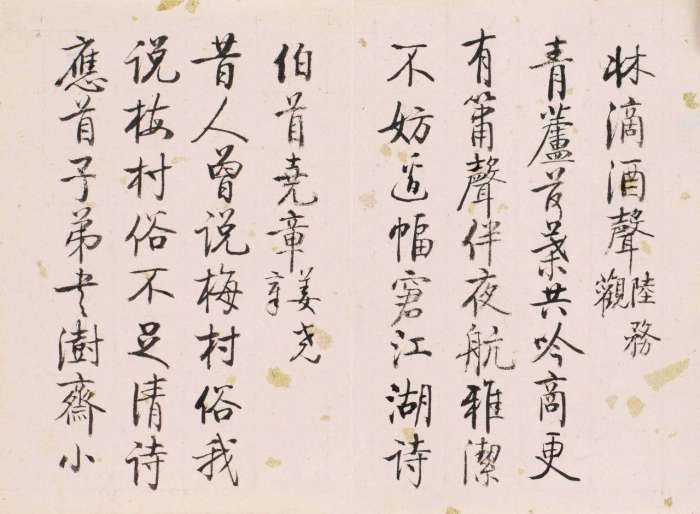 牀滴酒聲 陸務觀
青蘆葉共吟商更
有簫聲伴夜航雅潔
不妨邊幅窘江湖詩
伯首堯章 姜尧章
昔人曾说梅村俗我
说梅村俗不足清诗
應首子弟澍齋小